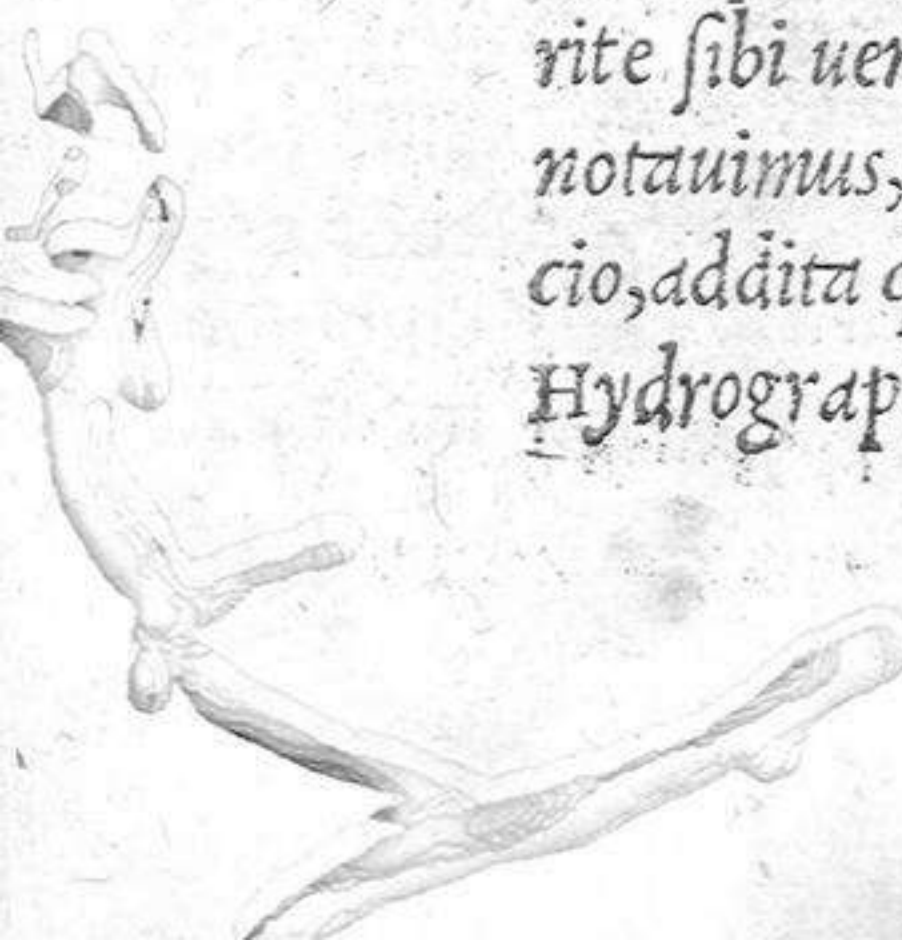 rite ſibi uer
notauimus,
cio,addita q
Hydrograp